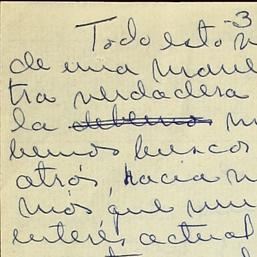 -3
Todo esto n
de una mane
tra verdadera
la debemos
bemos buscar
atrós, hacia n
más que nun
interés actual